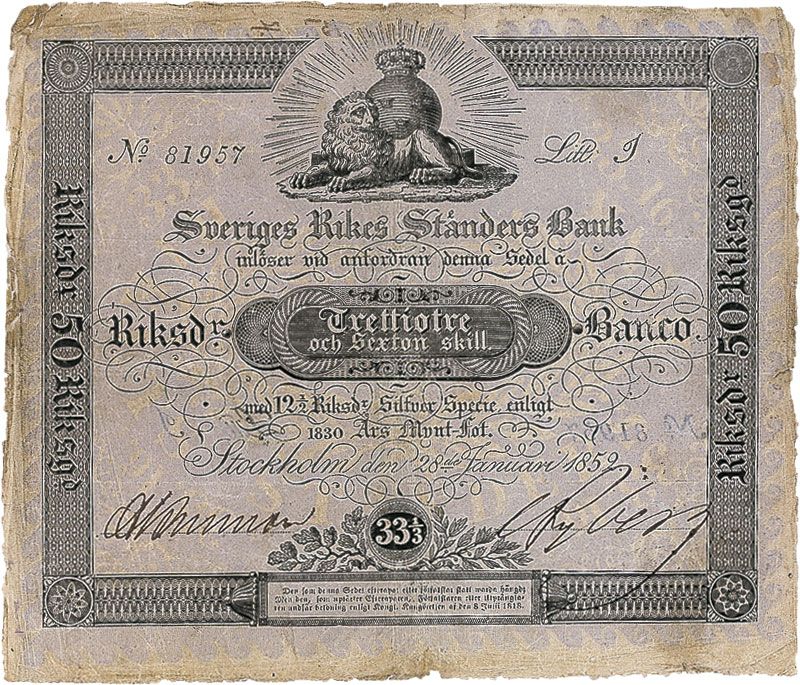 Nº 81957
Litt. I
Sveriges Rikes Ständers Bank
inlöser vid anfordran denna Sedel à
Riksdr Trettiotre och Sexton skill. Banco.
med 12½ Riksdr Silfver Specie enligt
1830 Års Mynt-Fot.
Stockholm den 28de Januari 1859.
33⅓
Den som denna Sedel efterapar eller förfalskar skall warda hängd;
Men den, som upptäcker Efteraparen, Förfalskaren eller
undfår belöning enligt Kongl. Kungörelsen af den 8 Junii 1818.
Riksdr 50 Riksgd
Riksdr 50 Riksgd